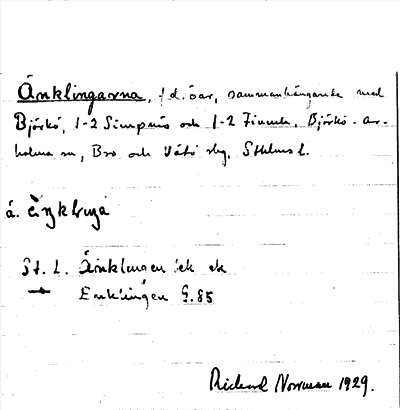 Änklingarna, f d. öar, sammanhängande med
Björkö, 1-2 Simpnäs och 1-2 Finnala, Björkö-Ar-
holma sn, Bro och Vätö slg, Sthlms l.
á.
St. L. Äncklingen ek
Encklingen G. 85
Rickard Norrman 1929.